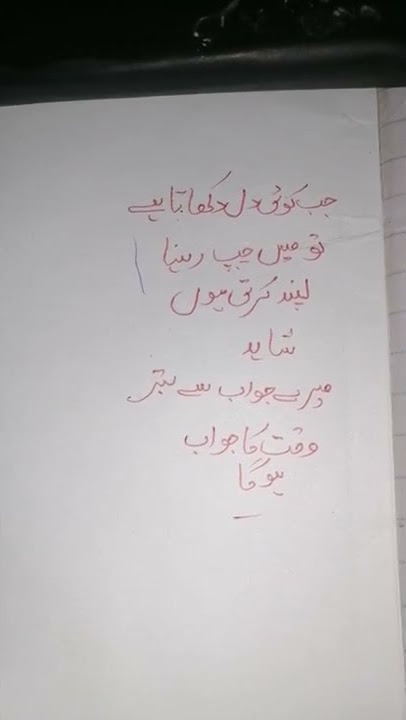 جب کوئی دل دکھاتا ہے
تو میں چپ رہنا
پسند کرتی ہوں
شاید
میرے جواب سے بہتر
وقت کا جواب
ہوگا